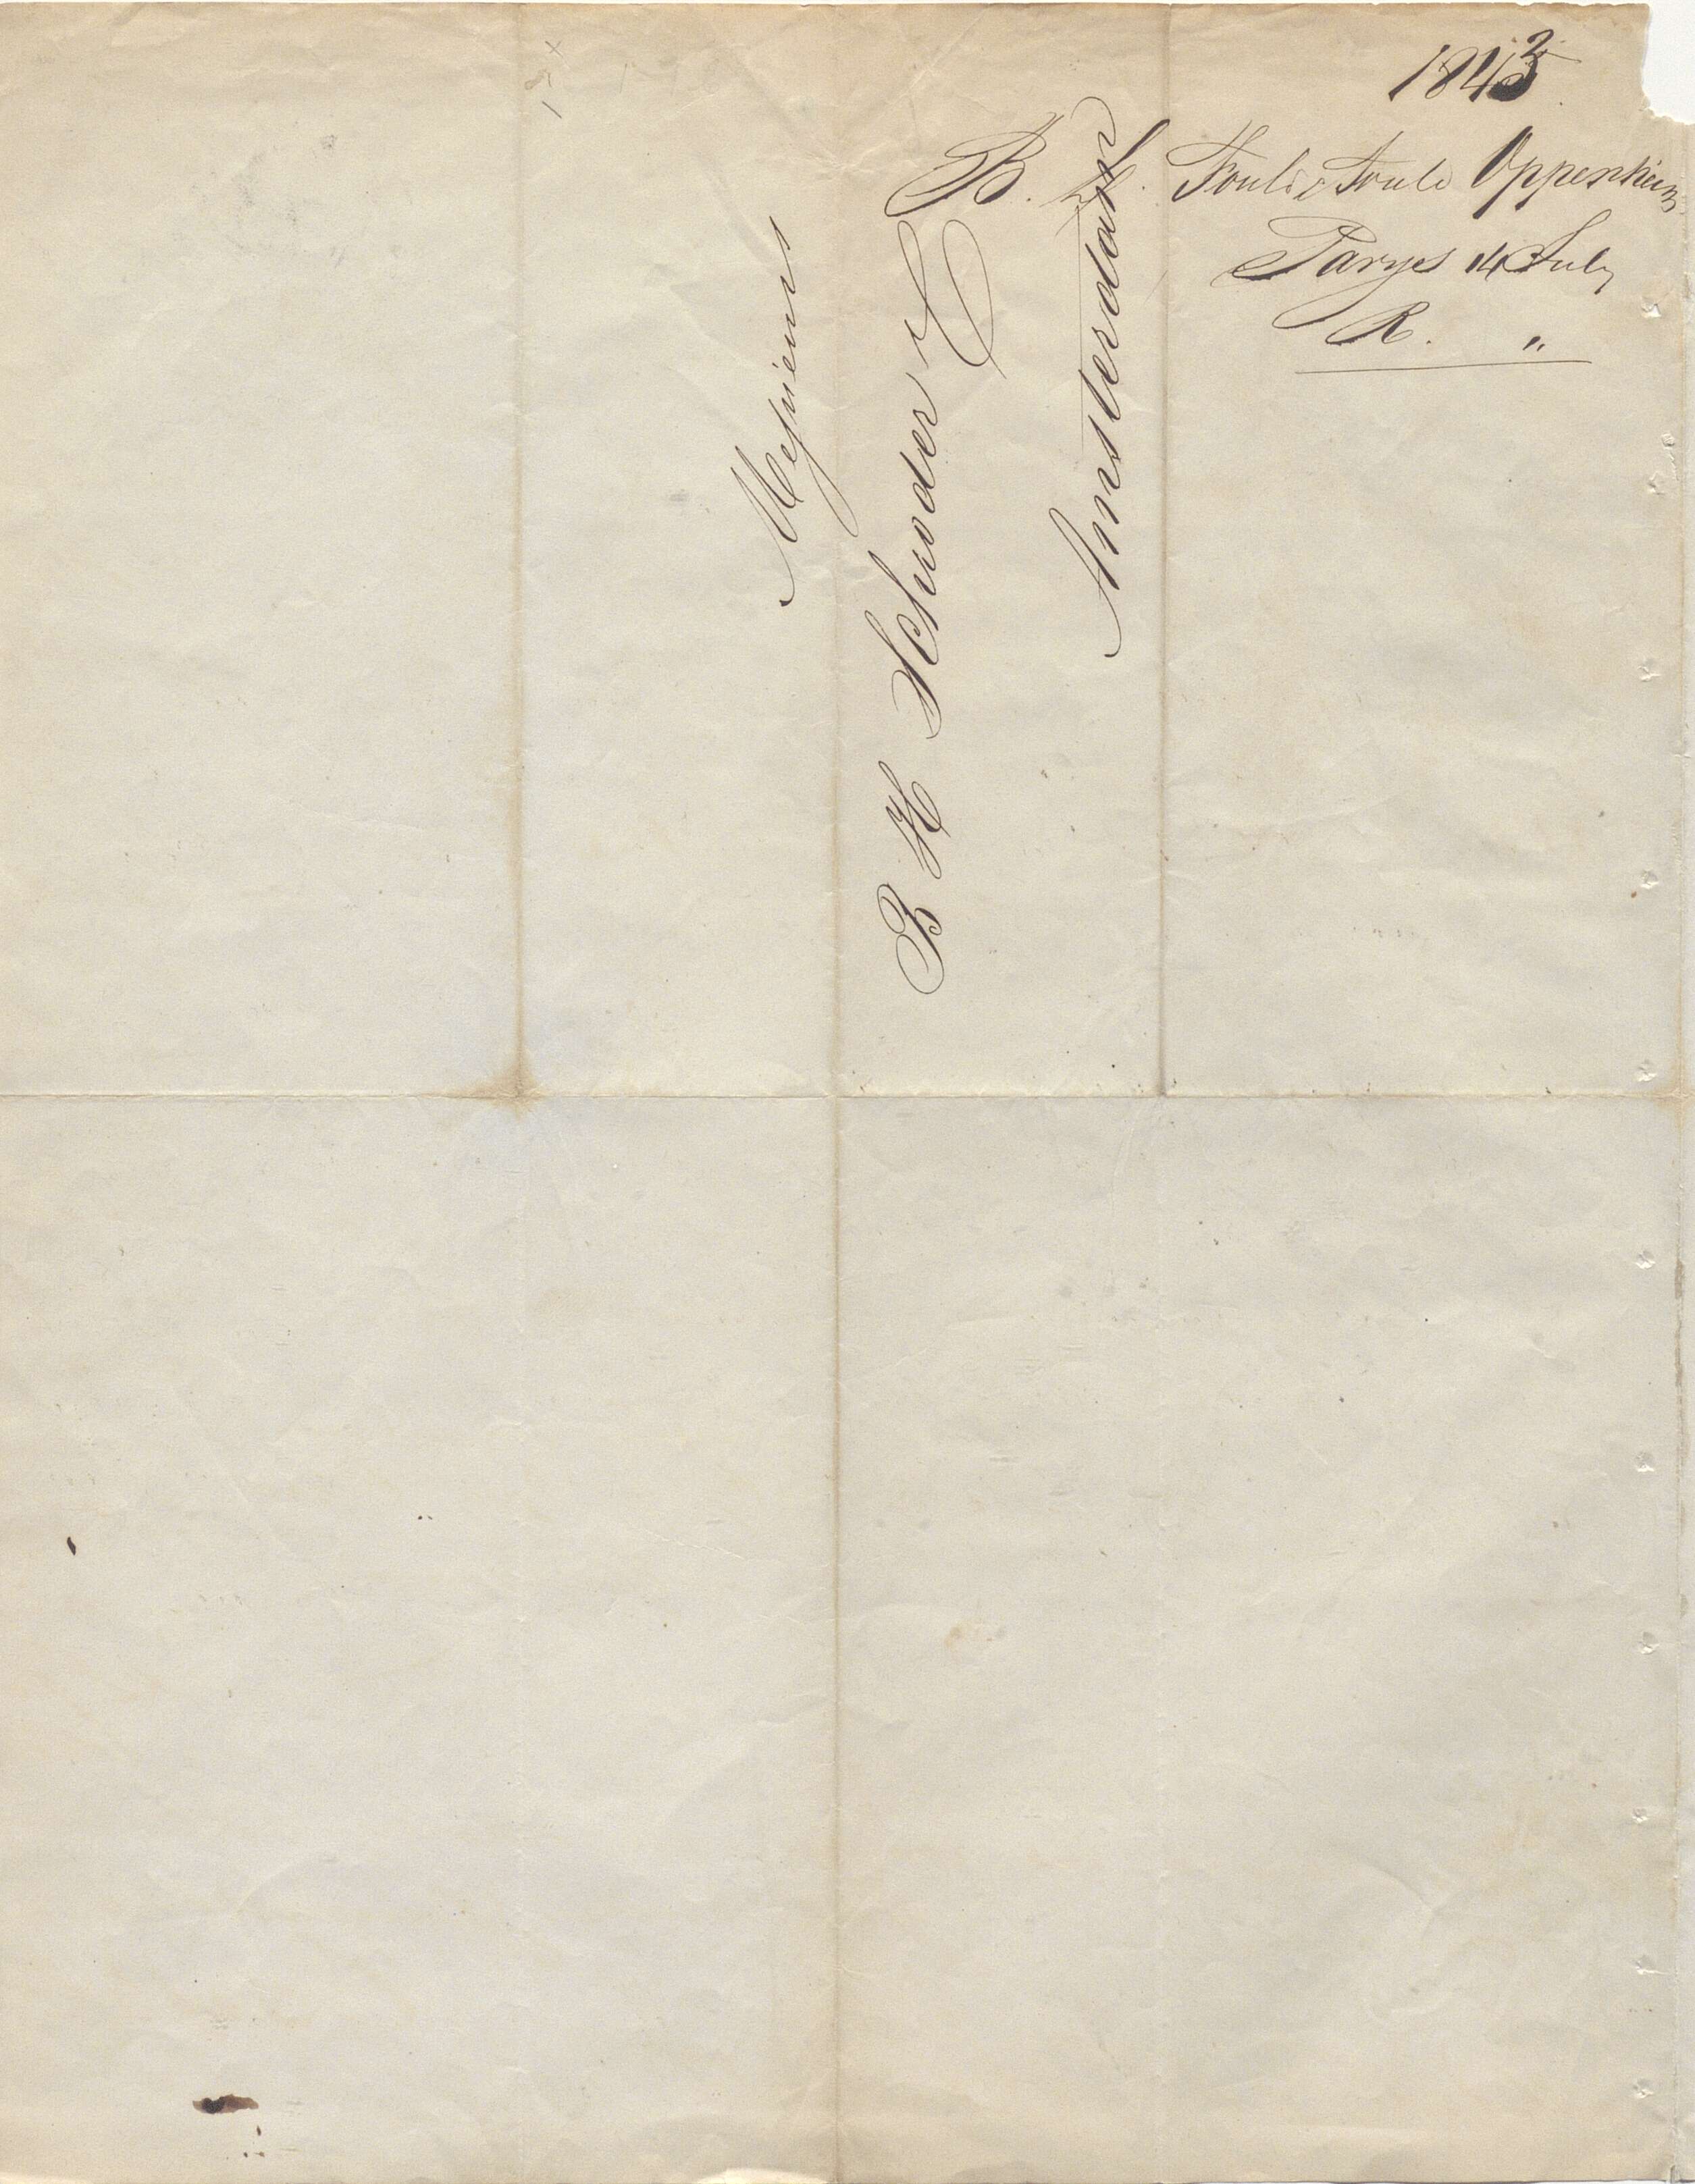 1843
B. L. Fould & Fould Oppenheim
Parys 14 July
R. "
Messieurs
B H Schroder & C
Amsterdam